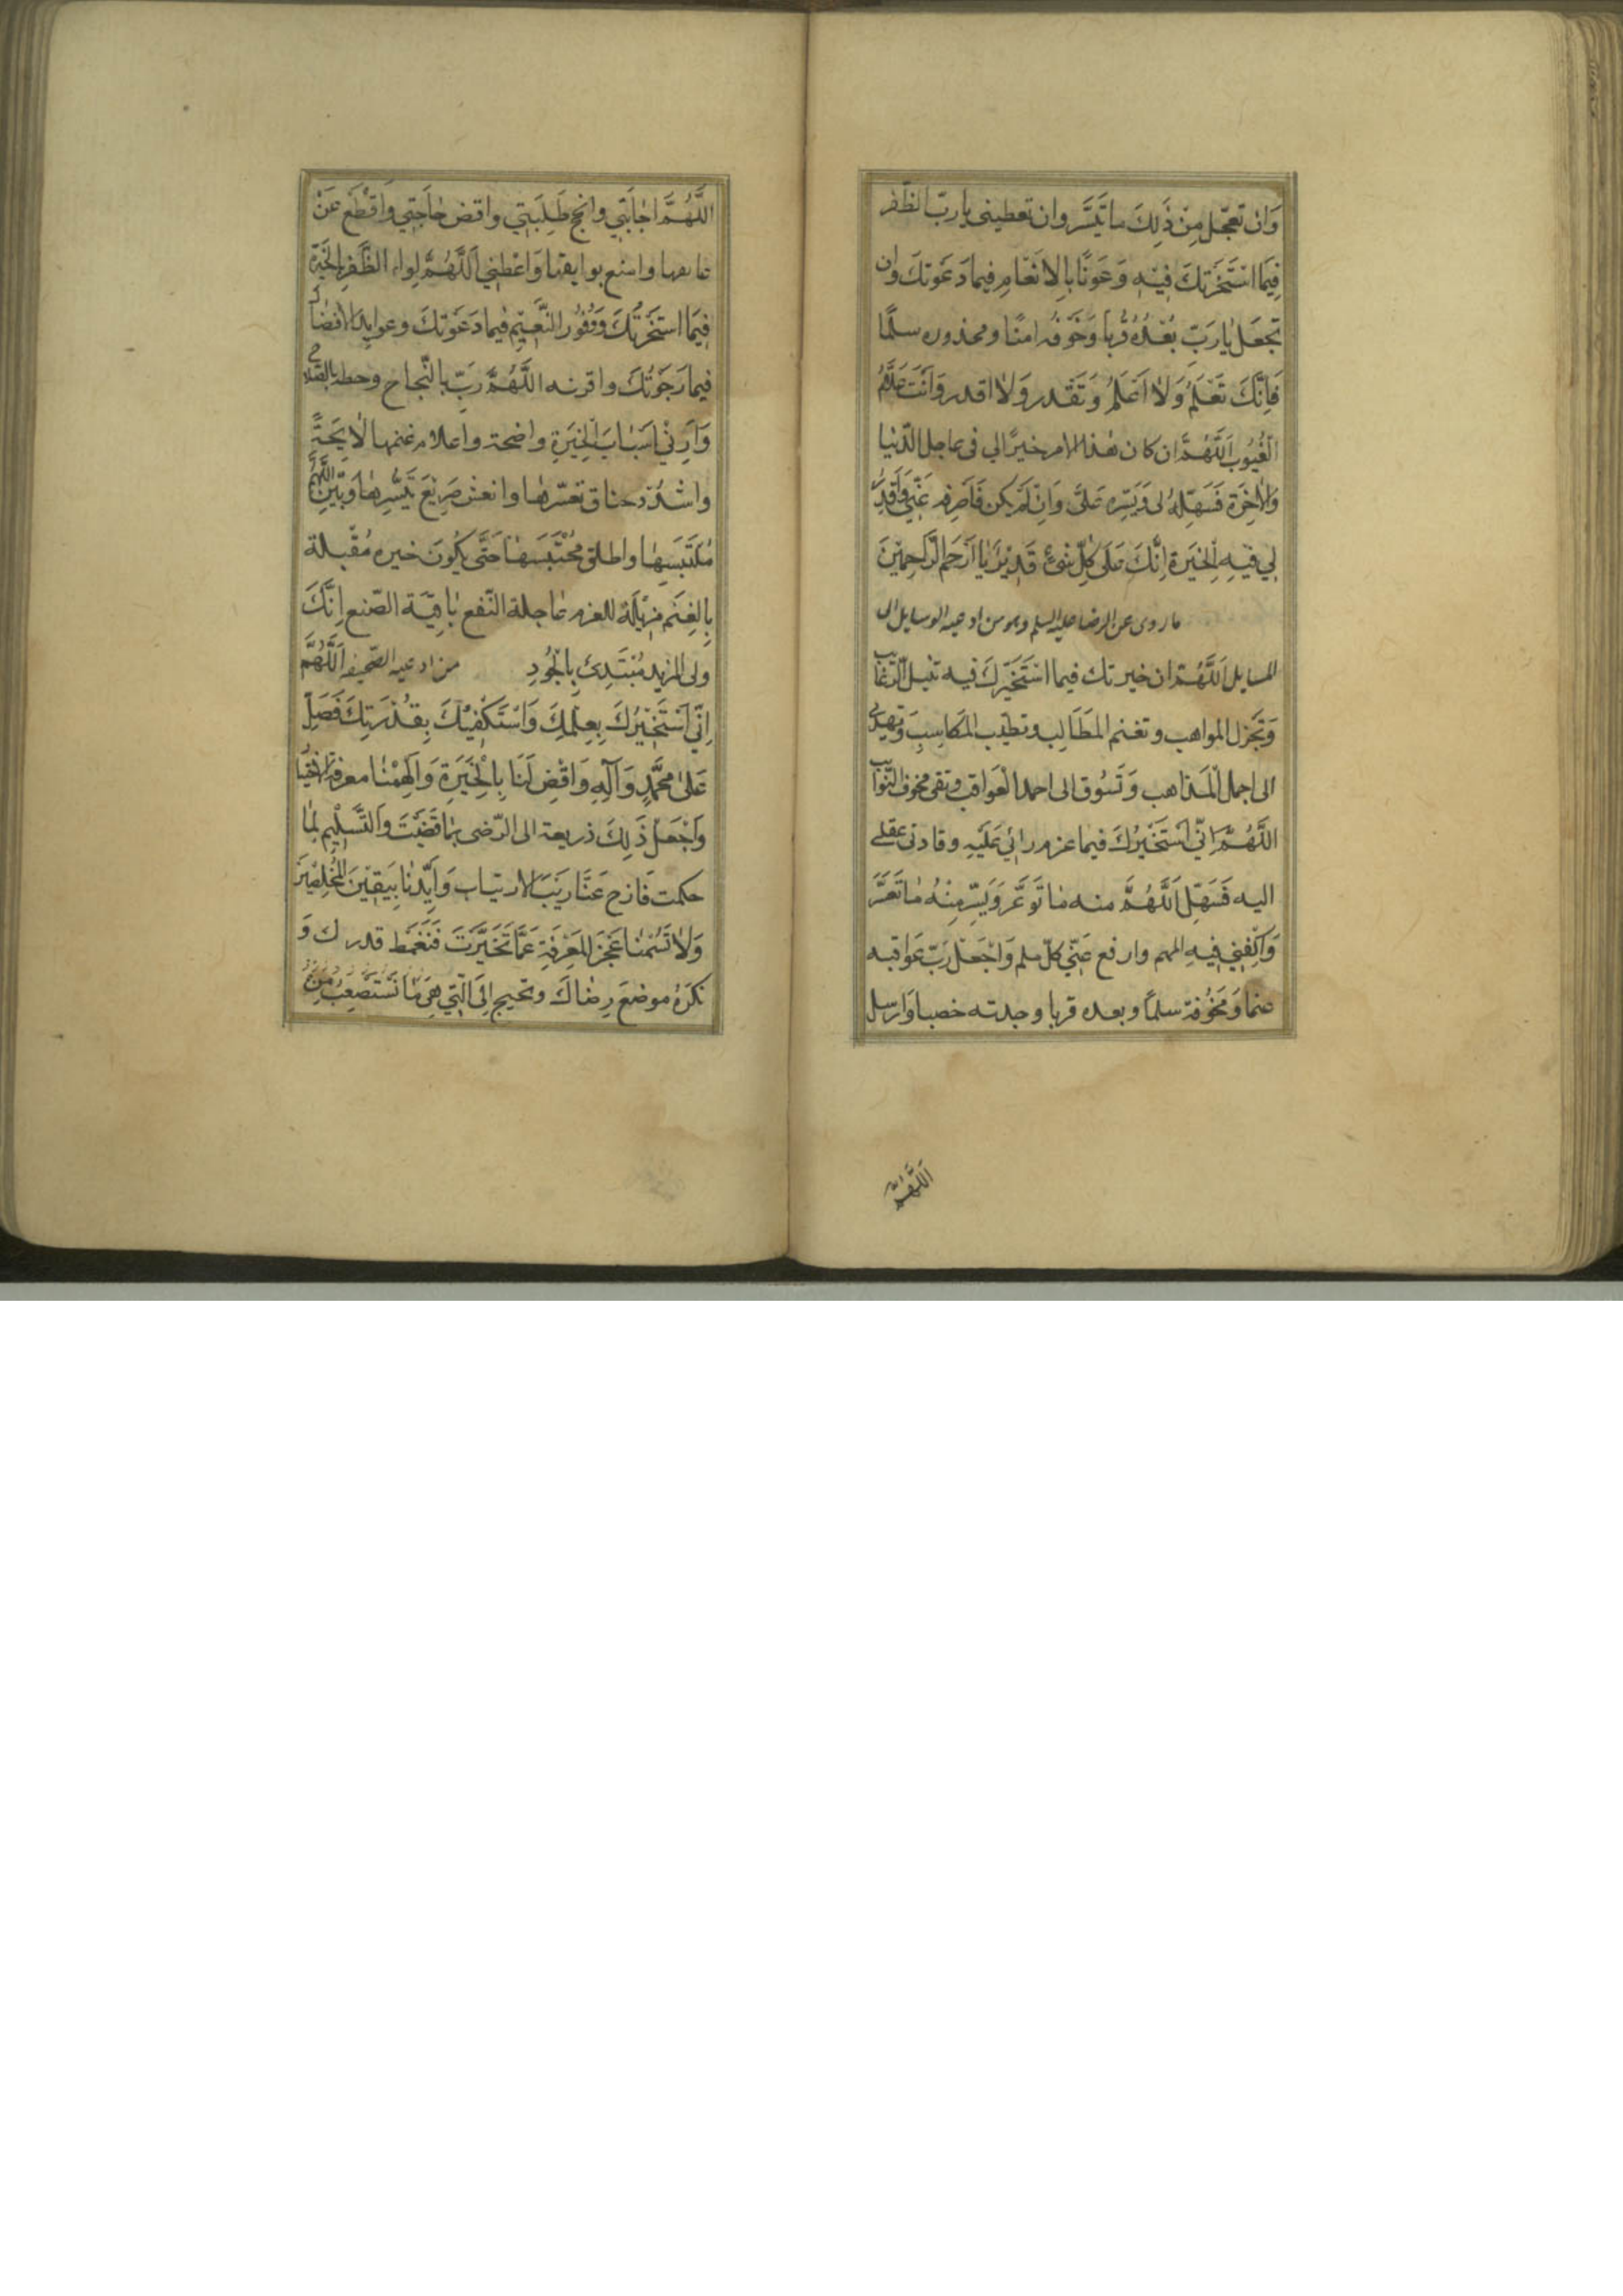 وَان تعجّل مِنْ ذٰلِكَ ما تَيَسَّر وان تعطينى يا ربّ الظّفر
فِيمَا اسْتَخَرْتكَ فِيْهِ وَعَونًا بِالاِنعَامِ فِيما دَعَوتكَ وان
تجعَل يٰا رَبّ بُعْدُه قُربا وَخَوفه امنًا ومحذوره سلمًا
فَاِنَّكَ تَعْلَمُ وَلاٰ اَعْلَمُ وَتَقدر وَلاٰ اقدر وَاَنْتَ عَلّامُ
الْغُيُوبِ اَللَّهُمَّ ان كان هٰذا الامر خيرًا لي فى عاجل الدّنيا
وَالاٰخِرَة فَسَهِّلهُ لى وَيَسّره عَلىَّ وَاِنْ لَمْ يكن فَاصرفه عَنّي وَاقدر
لي فيهِ الْخِيَرة اِنَّكَ عَلىٰ كُلِّ شَئٍ قَدِيْر يٰا اَرْحَم الرّٰاحِمِيْنَ
ما روى عن الرضا عليه السلم وهو من ادعية الوسايل الى
المسايل اَللَّهُمَّ ان خيرتك فيما اسْتَخَرتكَ فيه تنيل الرّغايب
وَتَجزل المواهب وتغنم المَطَالِب وتطيّب المَكاسِبَ وَتهدى
الى اجمل الْمَذاهب وَتَسُوق الى احمد الْعَواقب وتقى مخوف النّوايب
اللَّهُمَّ اِنّي اَسْتَخيْرُكَ فيما عزم رائي عَلَيْهِ وقادنى عقلى
اليه فَسَهِّل اَللَّهُمَّ منه مٰا تَوَعَّر وَيَسِّر مِنْهُ مٰا تَعَسَّر
وَاكْفِنِي فِيهِ المهم وارفع عَنّي كلّ ملم وَاجْعَل رَبّ عَواقبه
غنما وَمَخُوفه سلمًا وبعده قربا وجدبه خصبا وَارسل
اللَّهُمَّ
اللَّهُمَّ اجٰابَتِي وانجح طَلِبَتِي واقض حٰاجَتِي وَاقْطَع عَنْ
عايقها وامنع بوايقها وَاعْطِنِي اَللَّهُمَّ لِواء الظَّفَر بالْخِيَرة
فِيمَا استَخَرْتُكَ وَوُفُور النَّعِيْم فيما دَعَوْتكَ وعوايد الافضال
فيما رَجَوْتُكَ واقرنه اللَّهُمَّ رَبِّ بالنَّجاح وحطه بالصَّلاح
وَاَرِنِيْ اَسْبٰابَ الْخِيَرَةِ واضحة واعلام غنمها لاٰئِحَةً
واشْدُد خناق تعسّرهٰا وانعش صَرِيْعَ تَيَسُّرِهٰا وَبَيّن اللّهُمَّ
مُلتَبَسِهٰا واطلق مُحْتَبَسَهٰا حَتّى يَكُونَ خيره مُقْبلة
بِالغِنَم مُزِيْلَة للغرم عٰاجلة النّفع بٰاقِيَة الصّنع اِنَّكَ
ولى المزيد مُبْتَدِئ بِالْجُودِ من ادعية الصّحيفه اَللَّهُمَّ
اِنِّي اَسْتَخِيْرُكَ بِعِلْمِكَ وَاسْتَكْفِيْكَ بِقُدْرَتِكَ فَصَلِّ
عَلىٰ مُحَمَّدٍ وَآلِهِ وَاقْضِ لَنَا بِالْخِيَرَةِ وَاَلْهِمْنٰا معرفة الاختيار
وَاجْعَلْ ذٰلِكَ ذريعة الى الرّضى بمٰا قَضَيْتَ وَالتَّسْلِيْم لِمٰا
حكمت فَازح عَنّا رَيْبَ الارتياب وَاَيِّدْنٰا بِيَقِيْنَ الْمُخْلِصِيْنَ
وَلاٰ تَسُمْنٰا عَجْزَ المَعْرِفَةِ عَمّا تَخَيَّرْتَ فَنَغْمَط قدرك وَ
نَكْرَهُ موضعَ رِضٰاكَ ونجنح اِلَى الَّتِي هِيَ مٰا نَسْتَصْعِبُ مِنْ